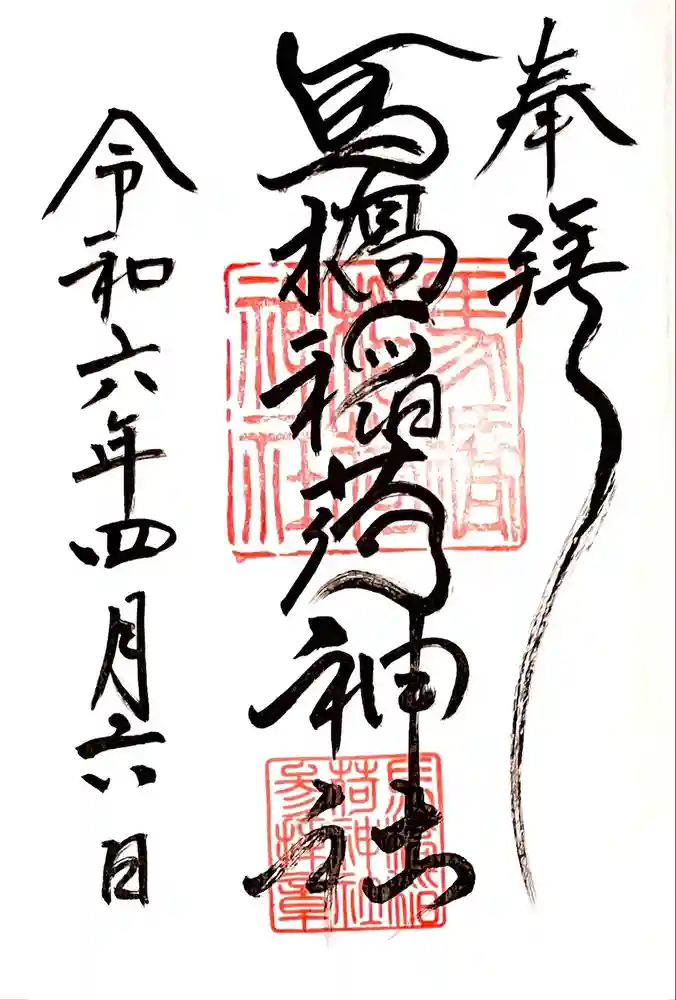 奉拝
馬橋稲荷神社
令和六年四月六日
馬橋
稲荷
神社
馬橋稲
荷神社
参拝章